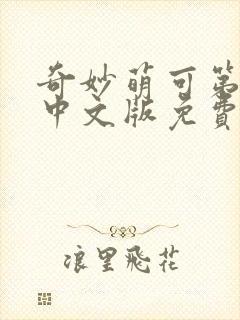 奇妙萌可第
中文版免费
浪里飛花